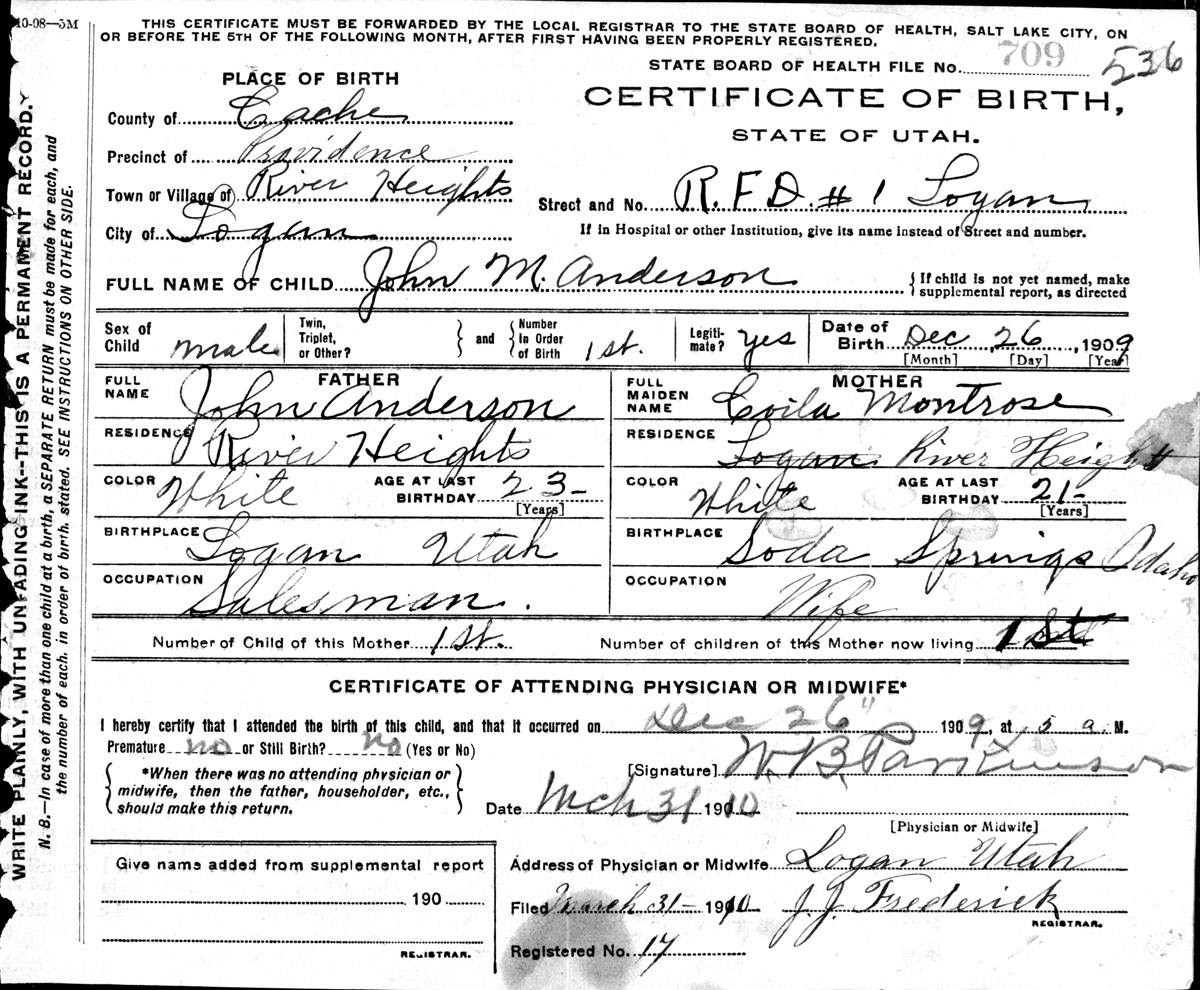 10-08—5M
THIS CERTIFICATE MUST BE FORWARDED BY THE LOCAL REGISTRAR TO THE STATE BOARD OF HEALTH, SALT LAKE CITY, ON
OR BEFORE THE 5TH OF THE FOLLOWING MONTH, AFTER FIRST HAVING BEEN PROPERLY REGISTERED.
STATE BOARD OF HEALTH FILE No. 709 536
PLACE OF BIRTH
CERTIFICATE OF BIRTH,
STATE OF UTAH.
County of Cache
Precinct of Providence
Town or Village of River Heights
Street and No. R.F.D. # 1 Logan
City of Logan
If in Hospital or other Institution, give its name instead of Street and number.
FULL NAME OF CHILD John M. Anderson
{If child is not yet named, make
supplemental report, as directed
Sex of Child male
Twin, Triplet, or Other? } and { Number In Order of Birth 1st.
Legiti-mate? yes
Date of Birth Dec 26, 1909
[Month] [Day] [Year]
FATHER
FULL NAME John Anderson
RESIDENCE River Heights
COLOR White AGE AT LAST BIRTHDAY 23-
[Years]
BIRTHPLACE Logan Utah
OCCUPATION Salesman.
MOTHER
FULL MAIDEN NAME Covila Montrose
RESIDENCE Logan River Heights
COLOR White AGE AT LAST BIRTHDAY 21-
[Years]
BIRTHPLACE Soda Springs Idaho
OCCUPATION Wife
Number of Child of this Mother 1st. Number of children of this Mother now living 1st
CERTIFICATE OF ATTENDING PHYSICIAN OR MIDWIFE*
I hereby certify that I attended the birth of this child, and that it occurred on Dec 26" 1909, at 5 a. M.
Premature no or Still Birth? no (Yes or No)
[Signature] W. B. Parkinson
{ *When there was no attending physician or
midwife, then the father, householder, etc.,
should make this return. }
Date Mch 31 1910
[Physician or Midwife]
Address of Physician or Midwife Logan Utah
Filed March 31- 1910 J. J. Frederick
REGISTRAR.
Registered No. 17
Give name added from supplemental report
190
REGISTRAR.
WRITE PLAINLY, WITH UNFADING INK--THIS IS A PERMAMENT RECORD.
N. B.—In case of more than one child at a birth, a SEPARATE RETURN must be made for each, and
the number of each, in order of birth, stated. SEE INSTRUCTIONS ON OTHER SIDE.